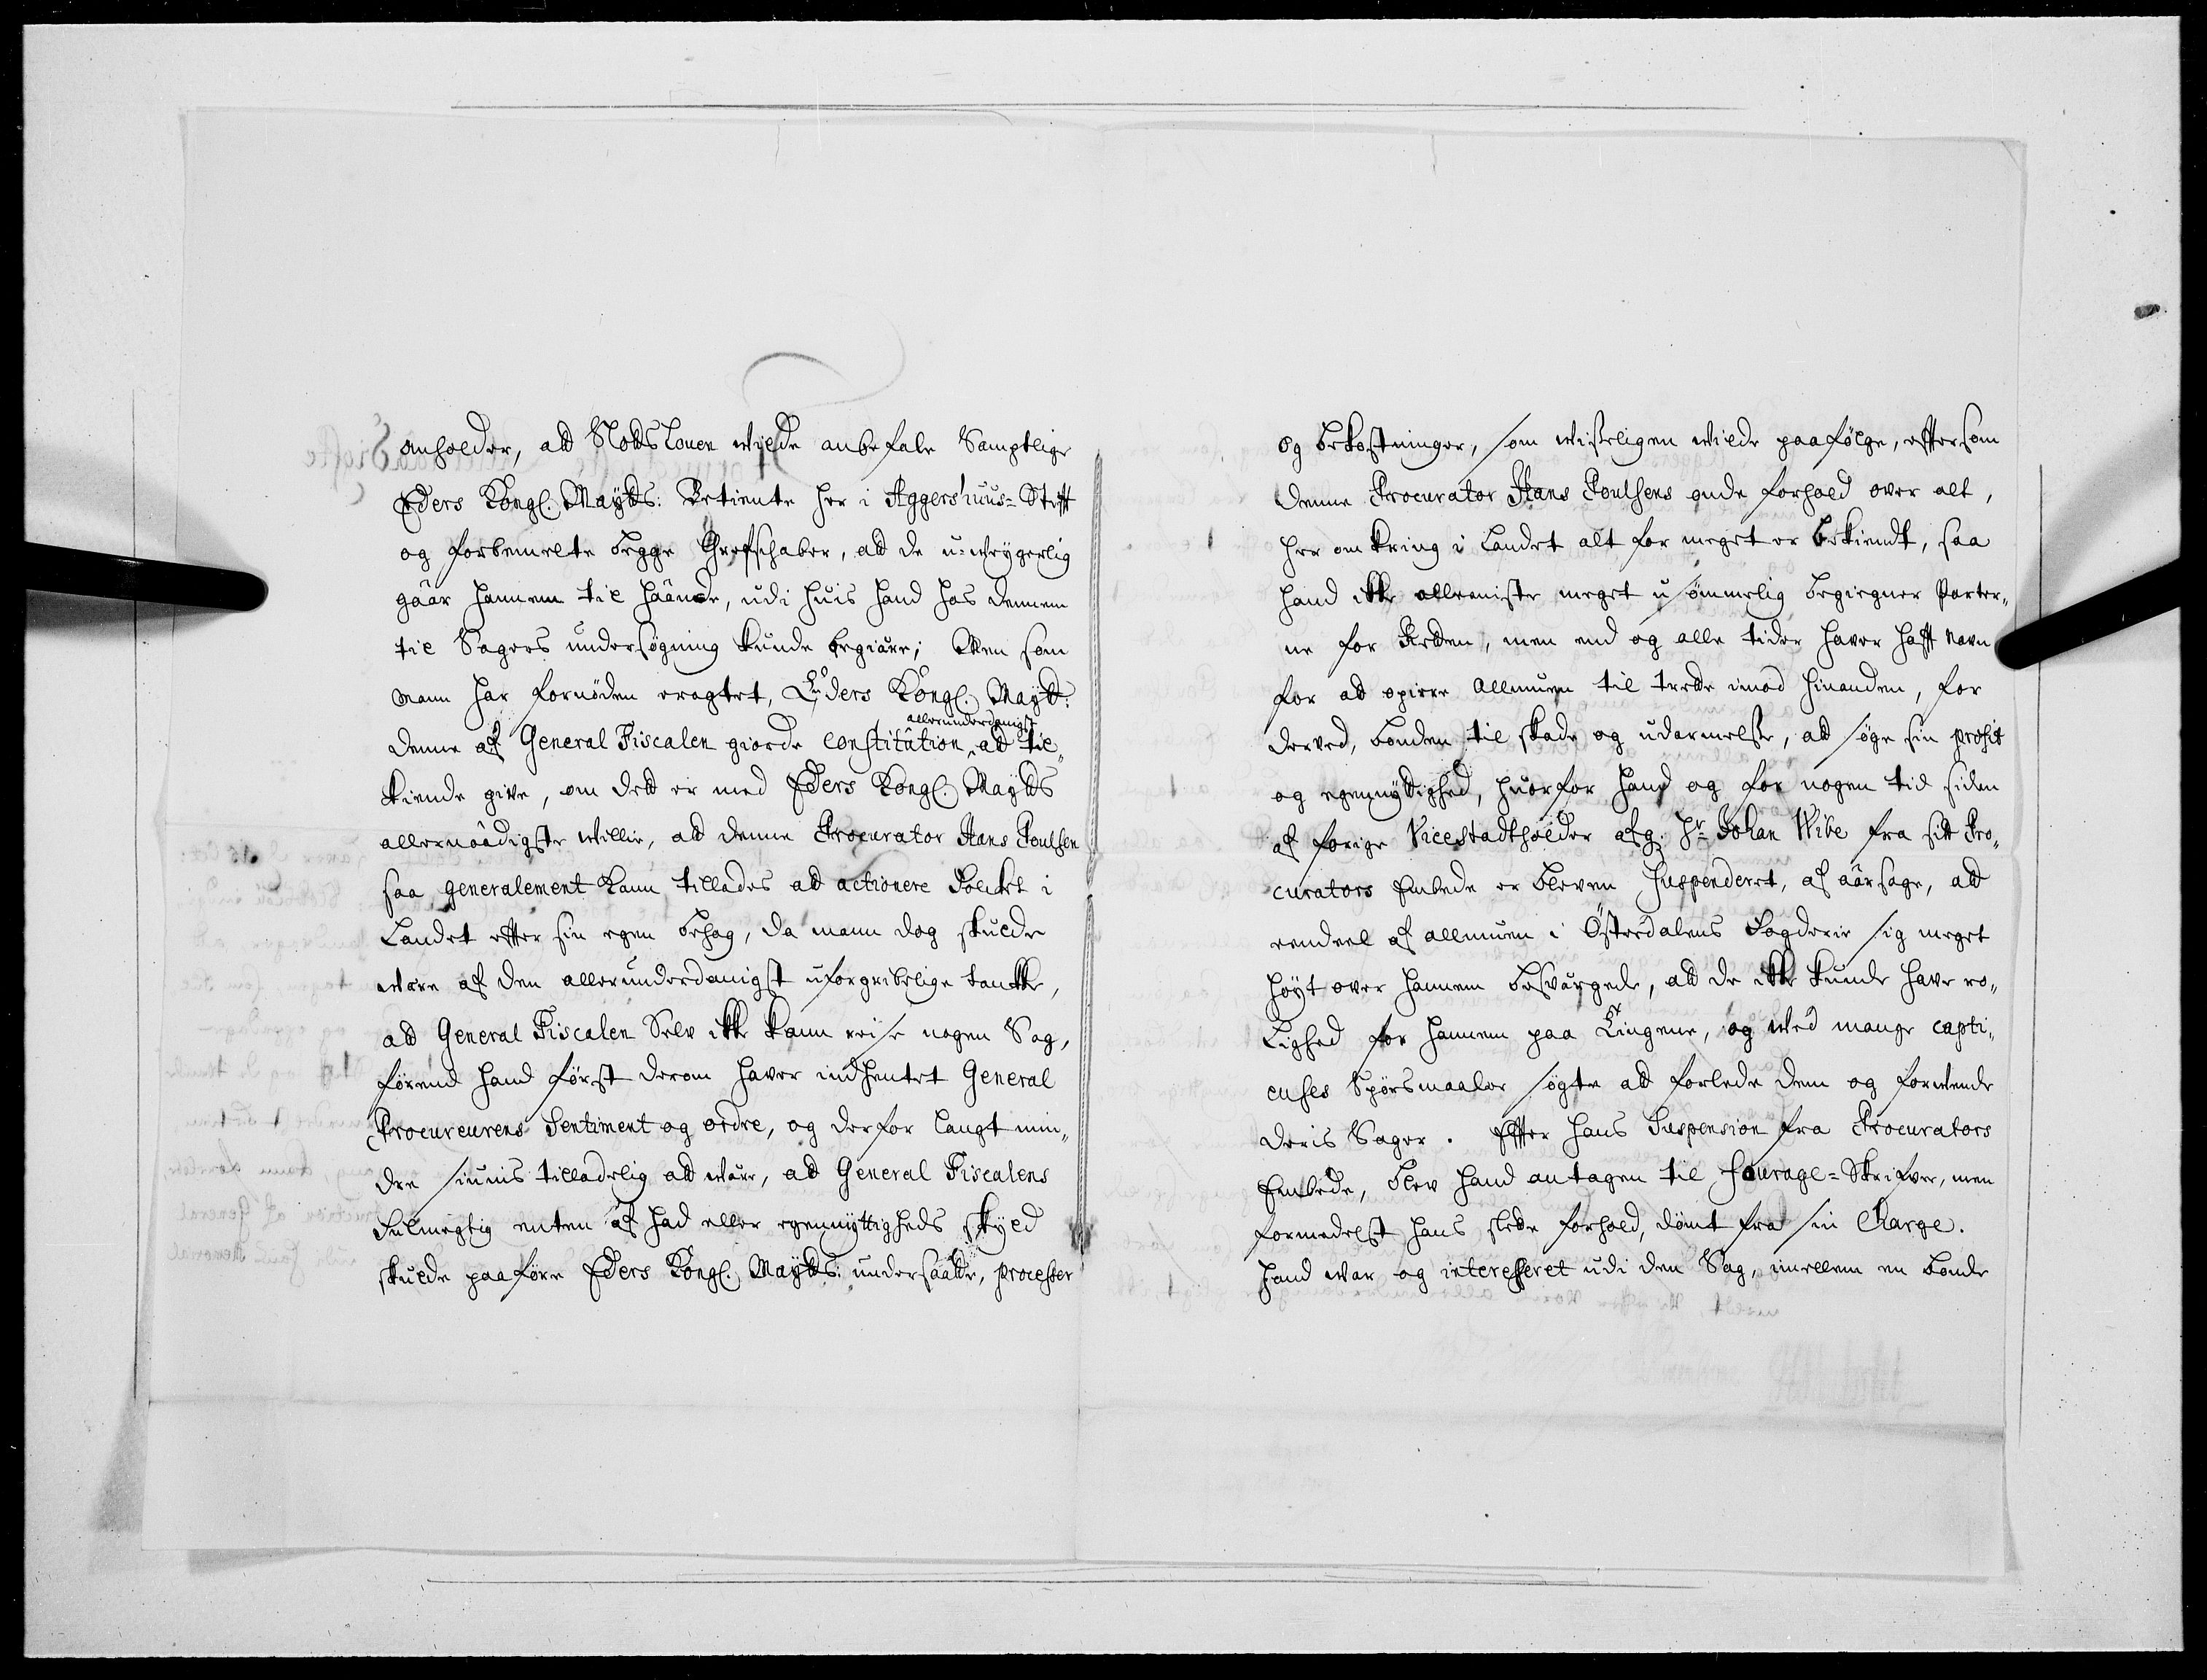 anholder, att Slotts Louen wilde anbefale Samptlige
Eders Kongl. Maytts: Betiente her i Aggershuus-Stift
og forbemelte begge Grefschaber, att de u-weygerlig
gaar hannem til haande, udi huis hand hos dennem
til Sagers undersøgning kunde begiære; Men som
mann har fornøden eragtet, Eders Kongl. Maytt:
denne af General Fiscalen giorde Constitution, allerunderdanigst att til„
kiende give, om dett er med Eders Kongl. Maytts
allernaadigste willie, att denne Procurator Hans Poulsen
saa generalement kann tillades att actionere Folcket i
Landet efter sin egen behag, da mann dog skulde
være af den allerunderdanigst uforgribelige tancke,
att General Fiscalen Selv icke kann reise nogen Sag,
førend hand først derom haver indhentet General
Procureurens Sentiment og ordre, og derfor langt min„
dre siunis tilladelig att være, att General Fiscalens
Fulmegtig enten af had eller egennyttigheds skyld
skulde paaføre Eders Kongl. Maytts: undersaatte, processer
og bekostninger, som wisseligen wilde paafølge, eftersom
denne Procurator Hans Poulsens onde forhold over alt,
her omkring i Landet alt for meget er bekiendt, saa
hand icke alleeniste meget usømmelig begiegner Parter„
ne for Retten, men end og alle tider haver hafft Navn
for att opirre Allmuen til trette imod hinanden, for
derved, bonden til skade og udarmelse, att søge sin profit
og egennyttighed, huorfor hand og for nogen tid siden
af forige Vicestadtholder afg: Hr Johan Wibe fra sitt Pro„
curators Embede er bleven Suspenderet, af aarsage, att
eendeel af allmuen i Østerdalens Fogderie sig meget
høyt over hannem besværgede, att de icke kunde have ro„
lighed for hannem paa Tingene, og med mange capti„
euses Spørsmaaler søgte att forlede dem og forvende
deris Sager. Effter hans Suspension fra Procurators
Embede, blev hand antagen til Fourage-Skrifver, men
formedelst hans slette forhold, dømt fra sin Charge.
Hand war og interesseret udi den Sag, imellem en bonde